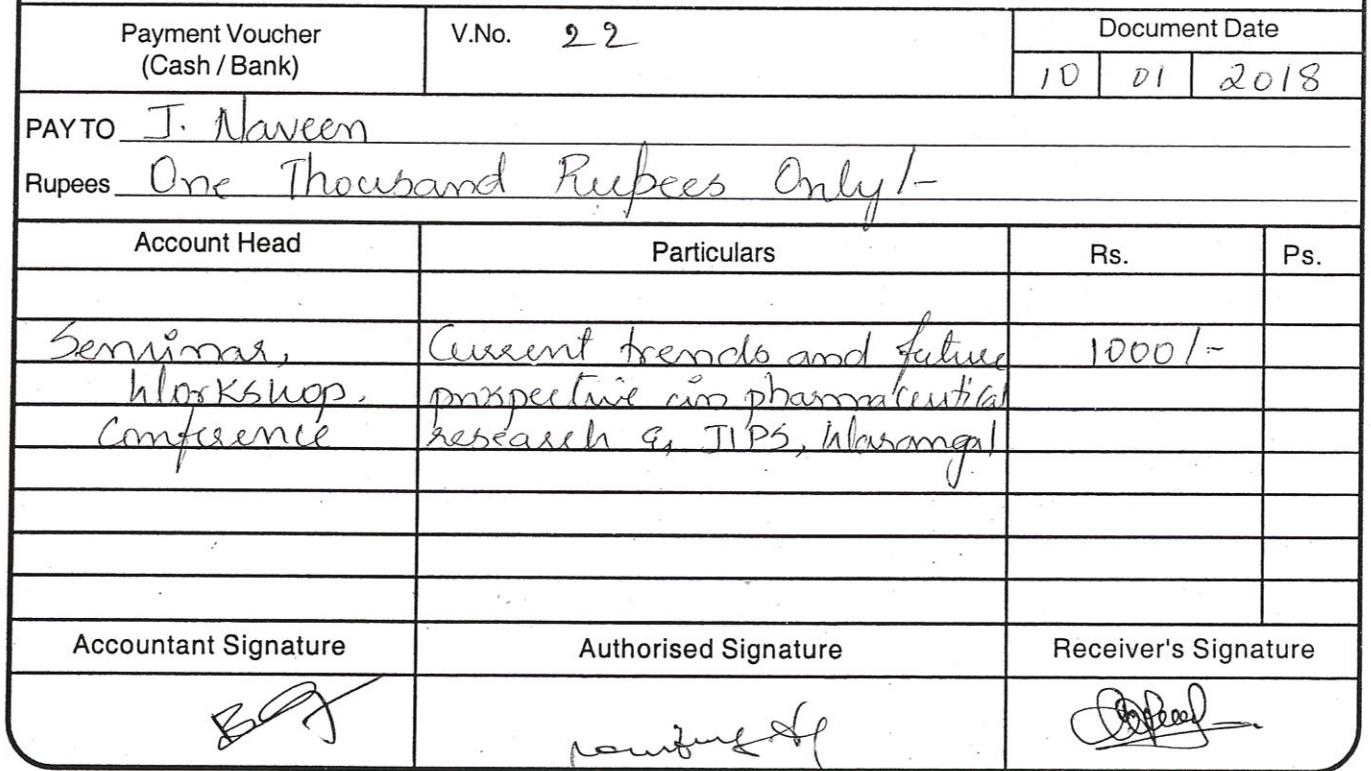 Payment Voucher
(Cash / Bank)
V.No. 22
Document Date
10 01 2018
PAY TO J. Naveen
Rupees One Thousand Rupees Only/-
Account Head Particulars Rs. Ps.
Seminar, Current trends and future 1000/-
Workshop. prospective in pharmaceutical
Conference research @, JIPS, Warangal
Accountant Signature Authorised Signature Receiver's Signature